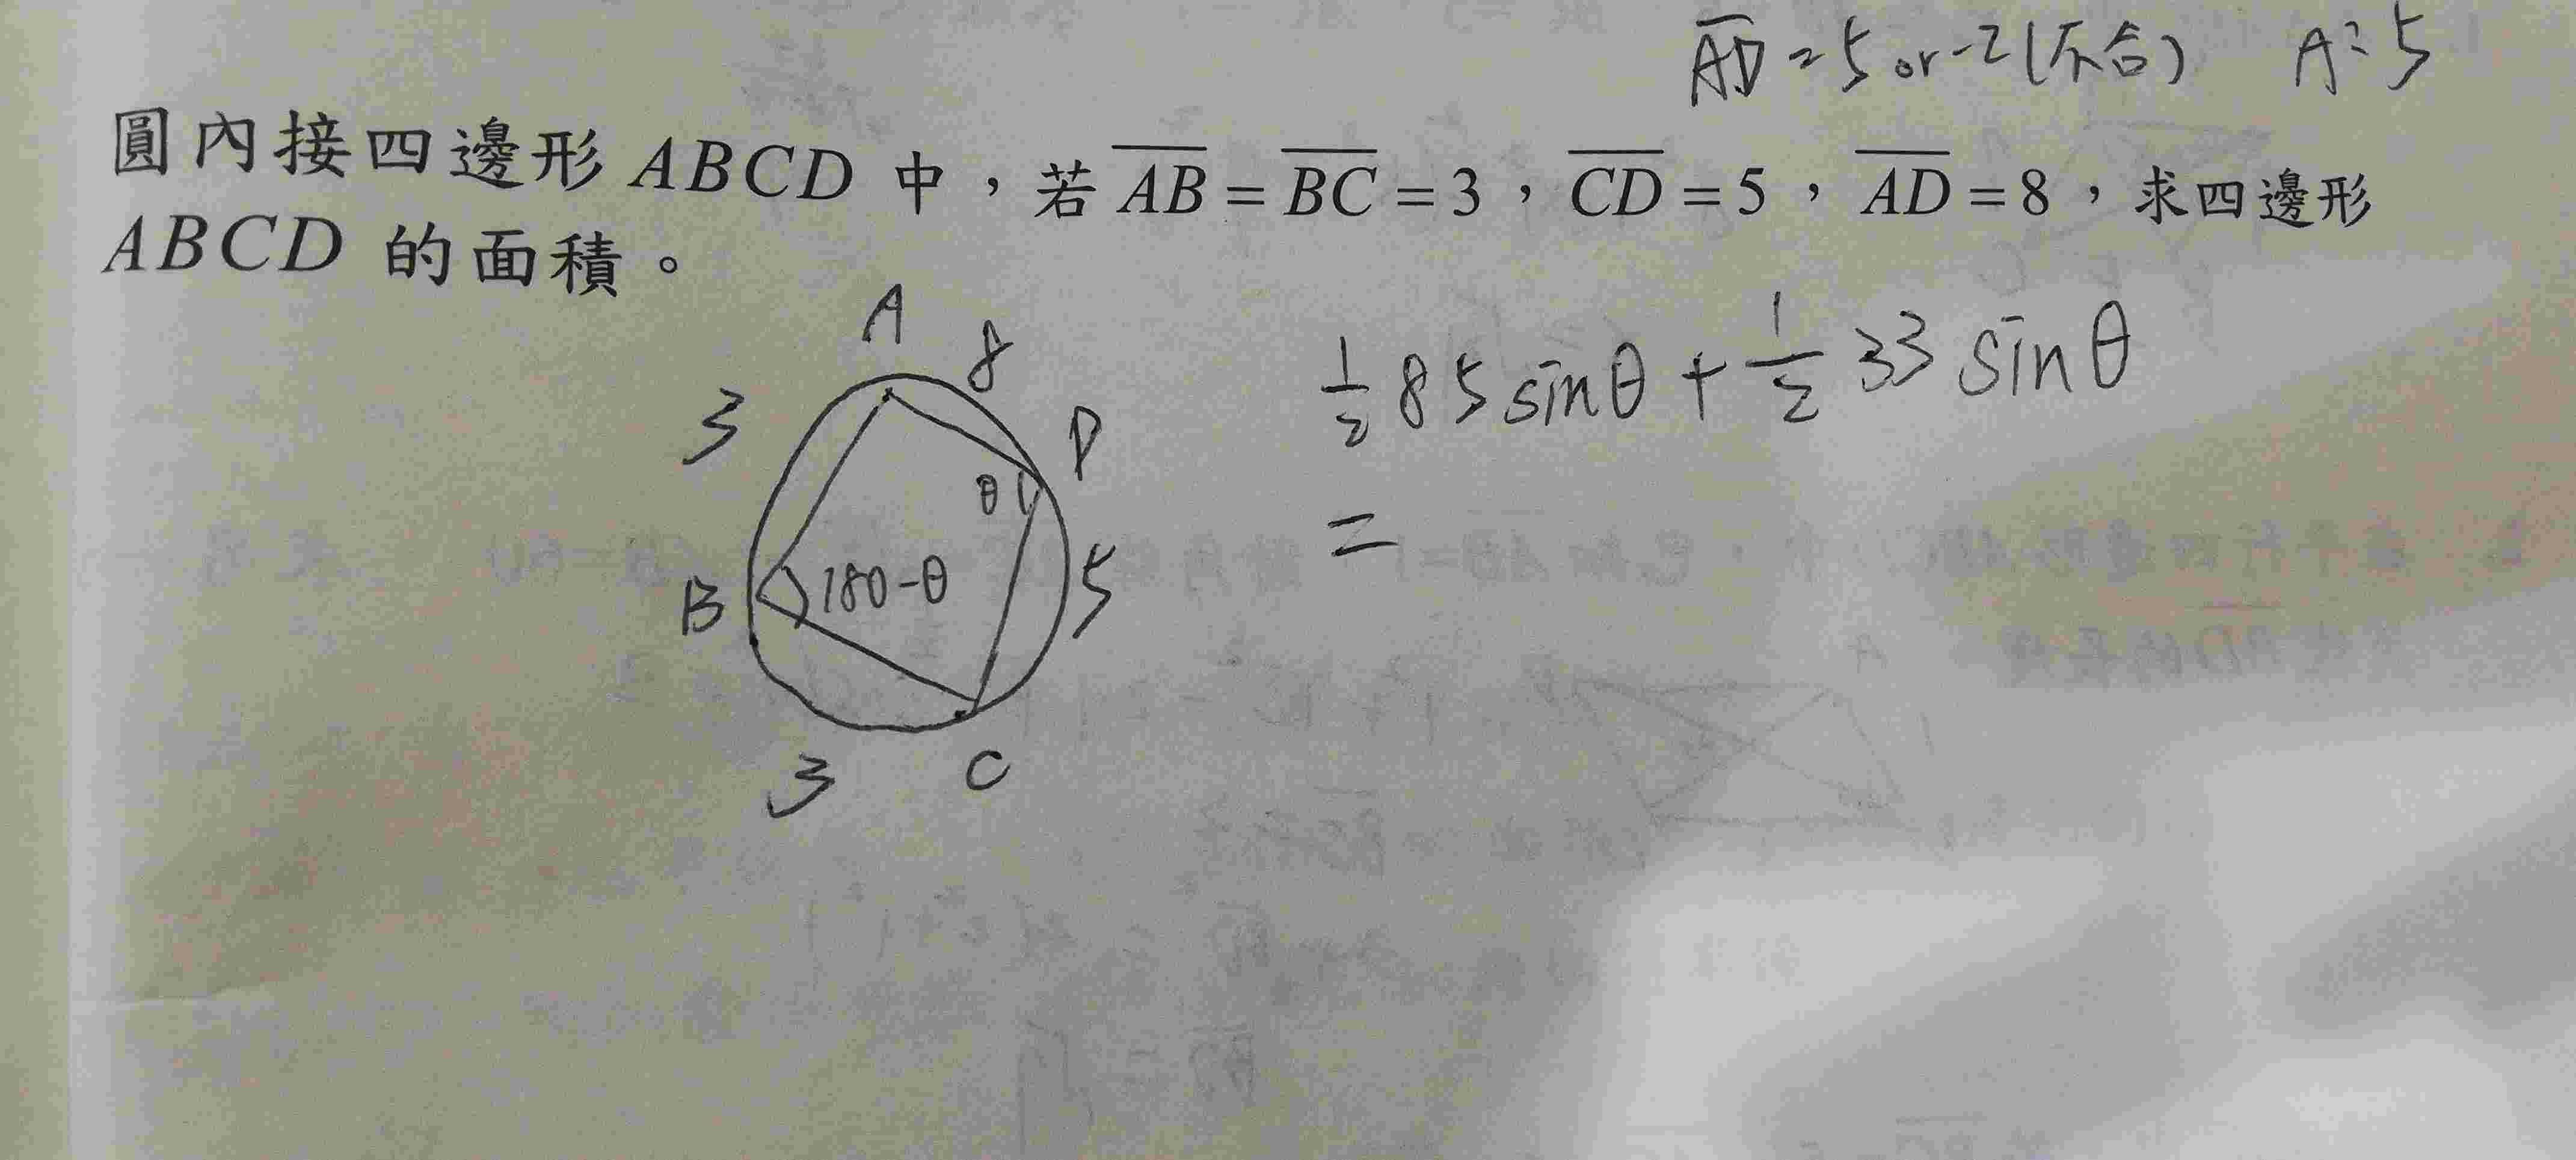 AD = 5 or -2 (不合) A: 5
圓內接四邊形 ABCD 中，若 AB = BC = 3，CD = 5，AD = 8，求四邊形
ABCD 的面積。
A 8
3 D
θ
B 180-θ 5
3 C
1/2 8 5 sinθ + 1/2 3 3 sinθ
=